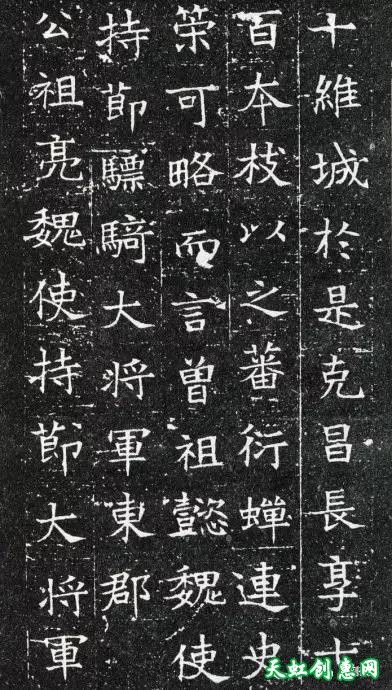 十維城於是克昌長享
百本枝以之蕃衍蟬連史
䇿可略而言曽祖懿魏使
持節驃騎大将軍東郡
公祖亮魏使持節大将軍
天虹创意网